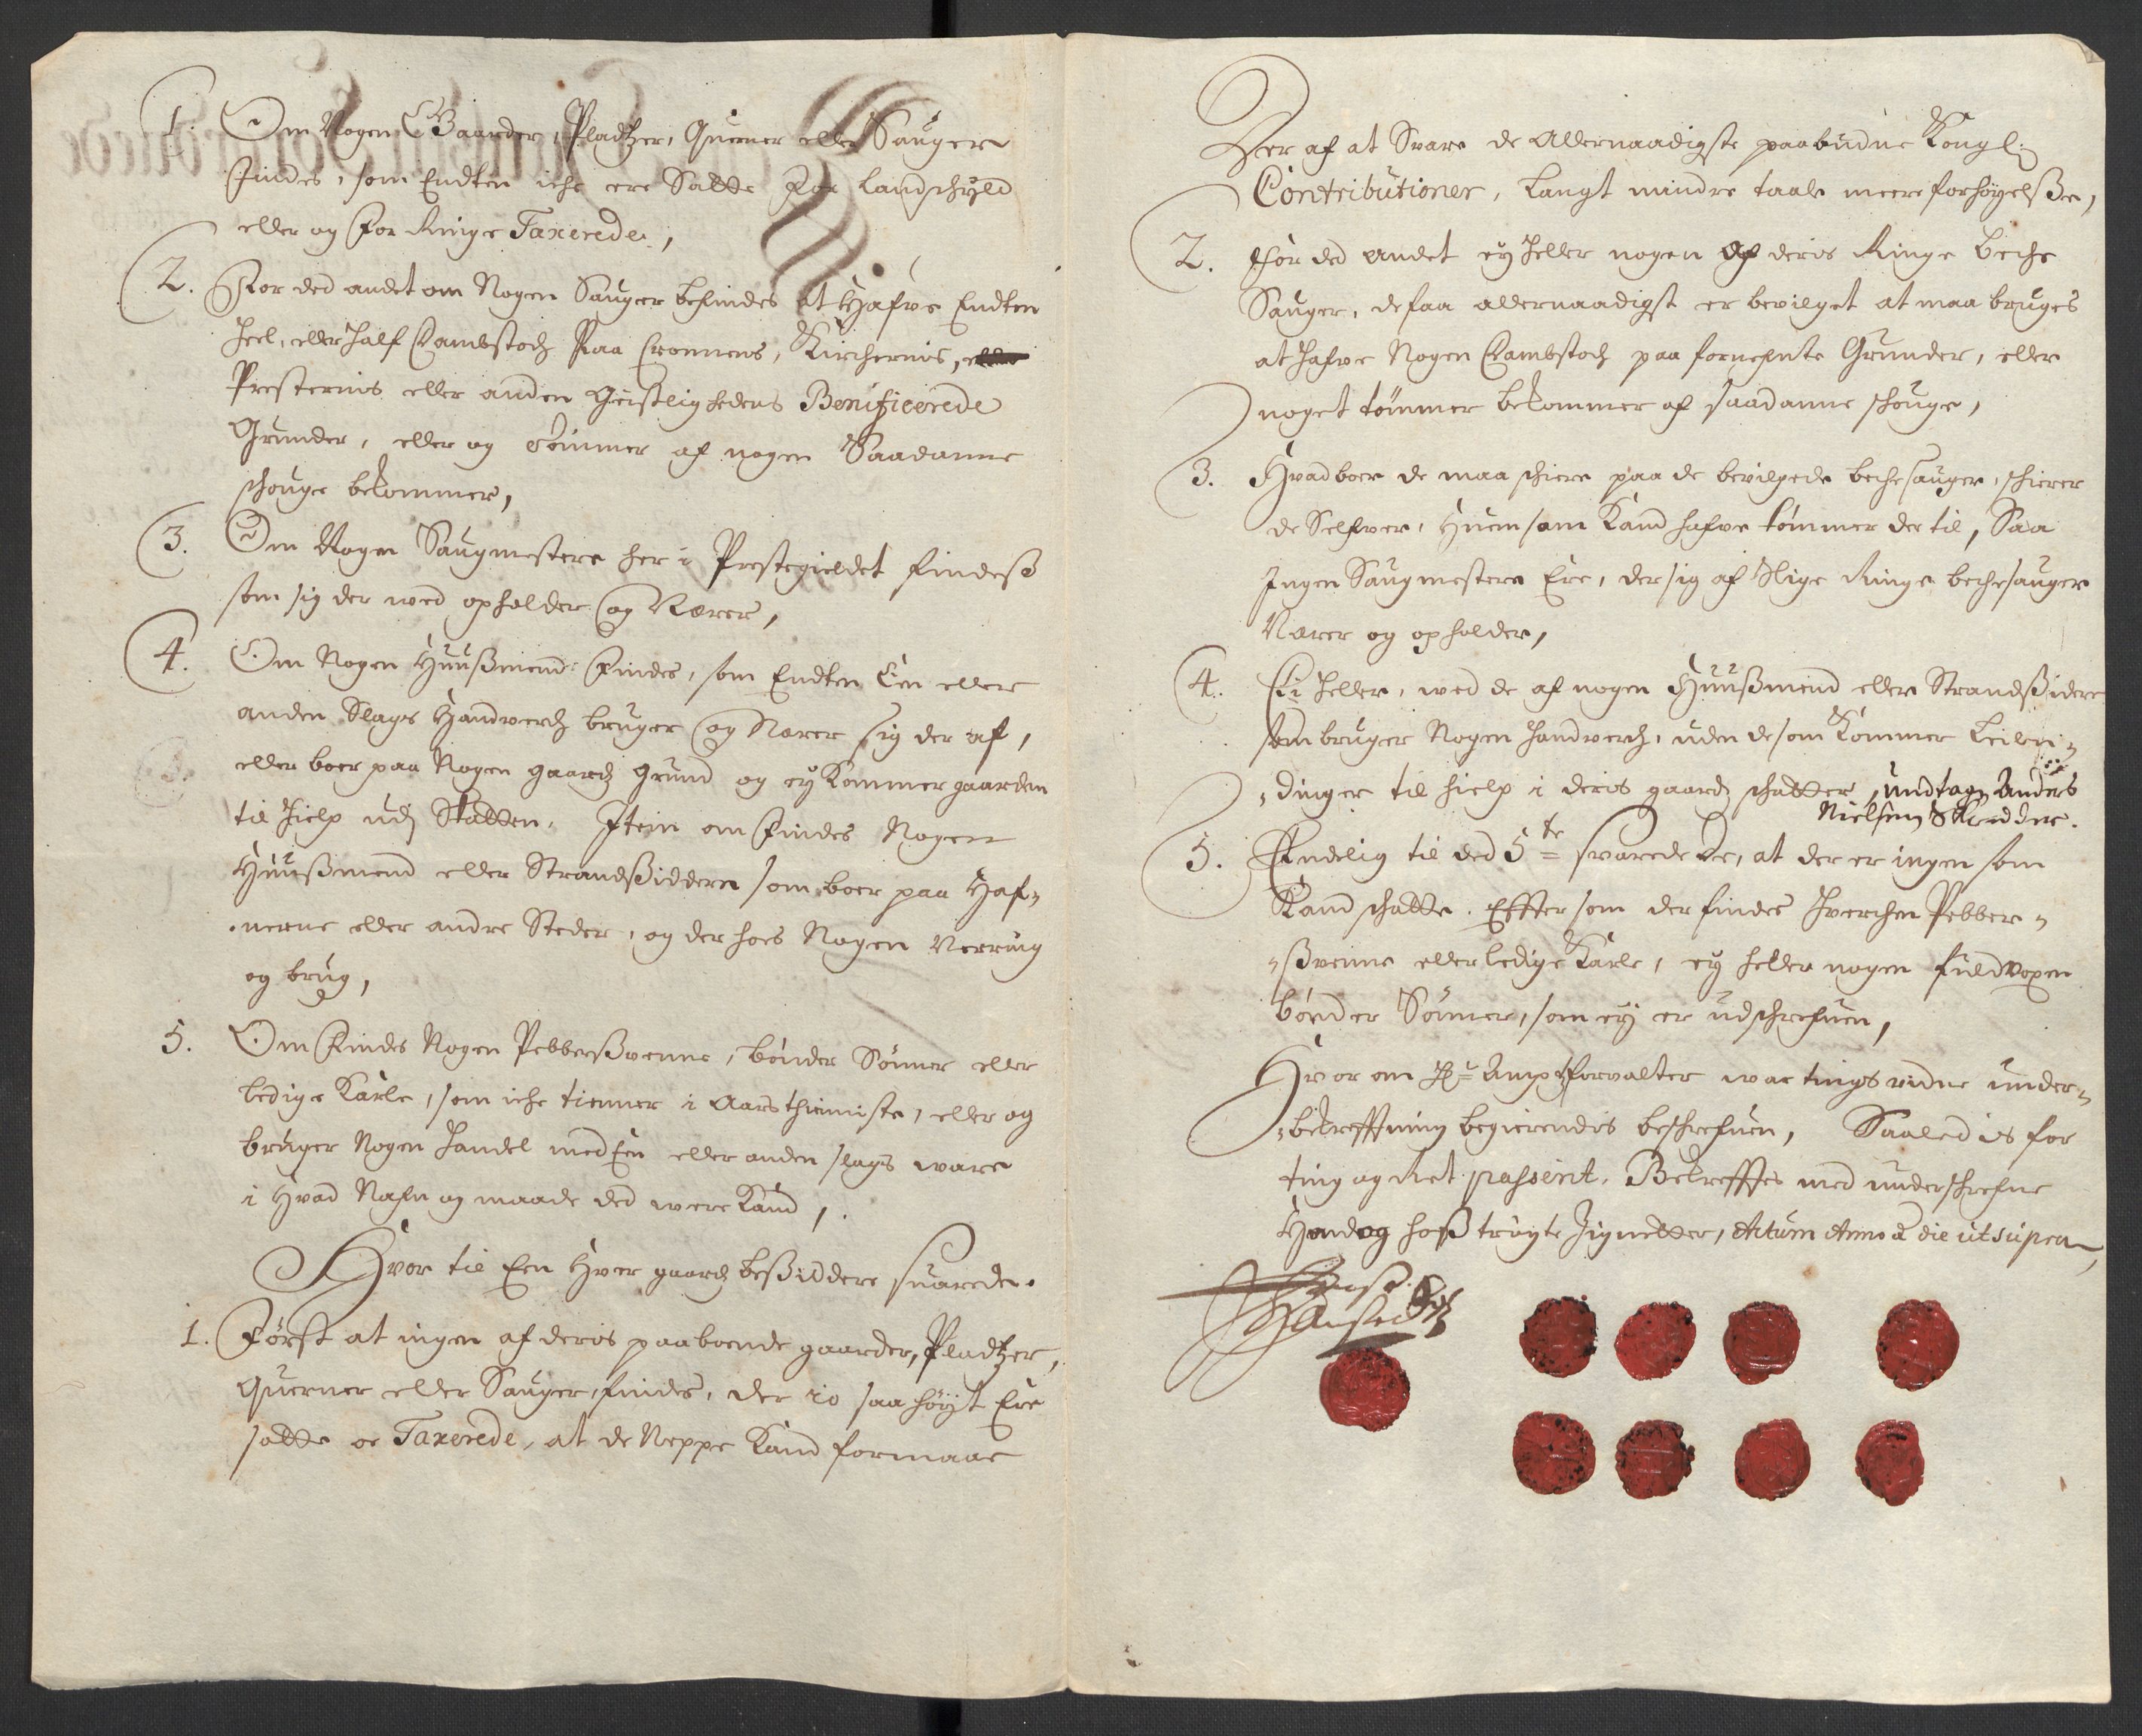 1. Om Nogen Gaarder, Pladtzer, Querner eller Sauger
findes, som Endten iche ere Satte for Landschyld
eller og for Ringe Taxerede,
2. For ded andet om Nogen Sauger befindes at Hafve Endten
heel, eller half Dambstoch Paa Cronnens, Kirchernis,
Presternis eller anden Geistlighedens Benificerede
Grunder, eller og tømmer af nogen Saadanne
schouge bekommer,
3. Om Nogen Saugmestere her i Prestegieldet findeß
som sig der med opholder og Nærer,
4. Om Nogen Huußmend findes, som Endten Een eller
anden Slags Handverch bruger og Nærer sig der af,
eller boer paa Nogen gaardz grund og ey Kommer gaarden
til hielp udj Skatten, Item om findes Nogen
Huußmend eller Strandßiddere som boer paa Haf-
nerne eller andre Steder, og der hoes Nogen Nerring
og brug,
5. Om findes Nogen Pebberßvenne, bønder Sønner eller
ledige Karle, som iche tienner i Aarsthienniste, eller og
bruger Nogen handel med Een eller anden slags ware
i Hvad Nafn og maade ded were Kand,
Hvor til Een Hver gaardbeßiddere suarede.
1. Først at ingen af deris paaboende gaarder, Pladtzer,
Querner eller Sauger, findes, der io saa høyt Ere
satte oc Taxerede, at de Neppe Kand formaae
Der af at Svare de Allernaadigste paabudne Kongl:
Contributioner, Langt mindre taale meere forhøyelße,
2. For ded andet ey heller nogen af deris Ringe beche
Sauger, de faa allernaadigst er bevilget at maa bruges
at hafve Nogen Dambstoch paa fornefnte Grunder, eller
noget tømmer bekommer af saadanne schouge,
3. Hvad boer de maa schiere paa de bevilgede bechesauger, schierer
de Selfver, Huem som Kand hafve tømmer der til, Saa
Ingen Saugmestere Ere, der sig af slige Ringe bechesauger
Nærer og opholder,
4. Ei heller, wed de af nogen Huußmend eller Strandßidere
som bruger Nogen handverch, uden de som Kommer Leilen-
dinger til hielp i deris gaardz schatter, undtagen Anders
Nielsen Skredder.
5. Endelig til ded 5te svarede de, at der er ingen som
Kand schatte. Effter som der findes hverchen Pebber-
ßvenne eller ledige Karle, ey heller nogen fuldvoxen
bønder Sønner, som ey er udschrefuen,
Hvor om Hr Ampt forvalter war tings vidne under
bekreffning begierendis beschrefuen, Saaledis for
ting og Ret passerit, Bekrefftes med underschrefne
Hand og hoß trygte Zignetter, Actum Anno & die ut supra